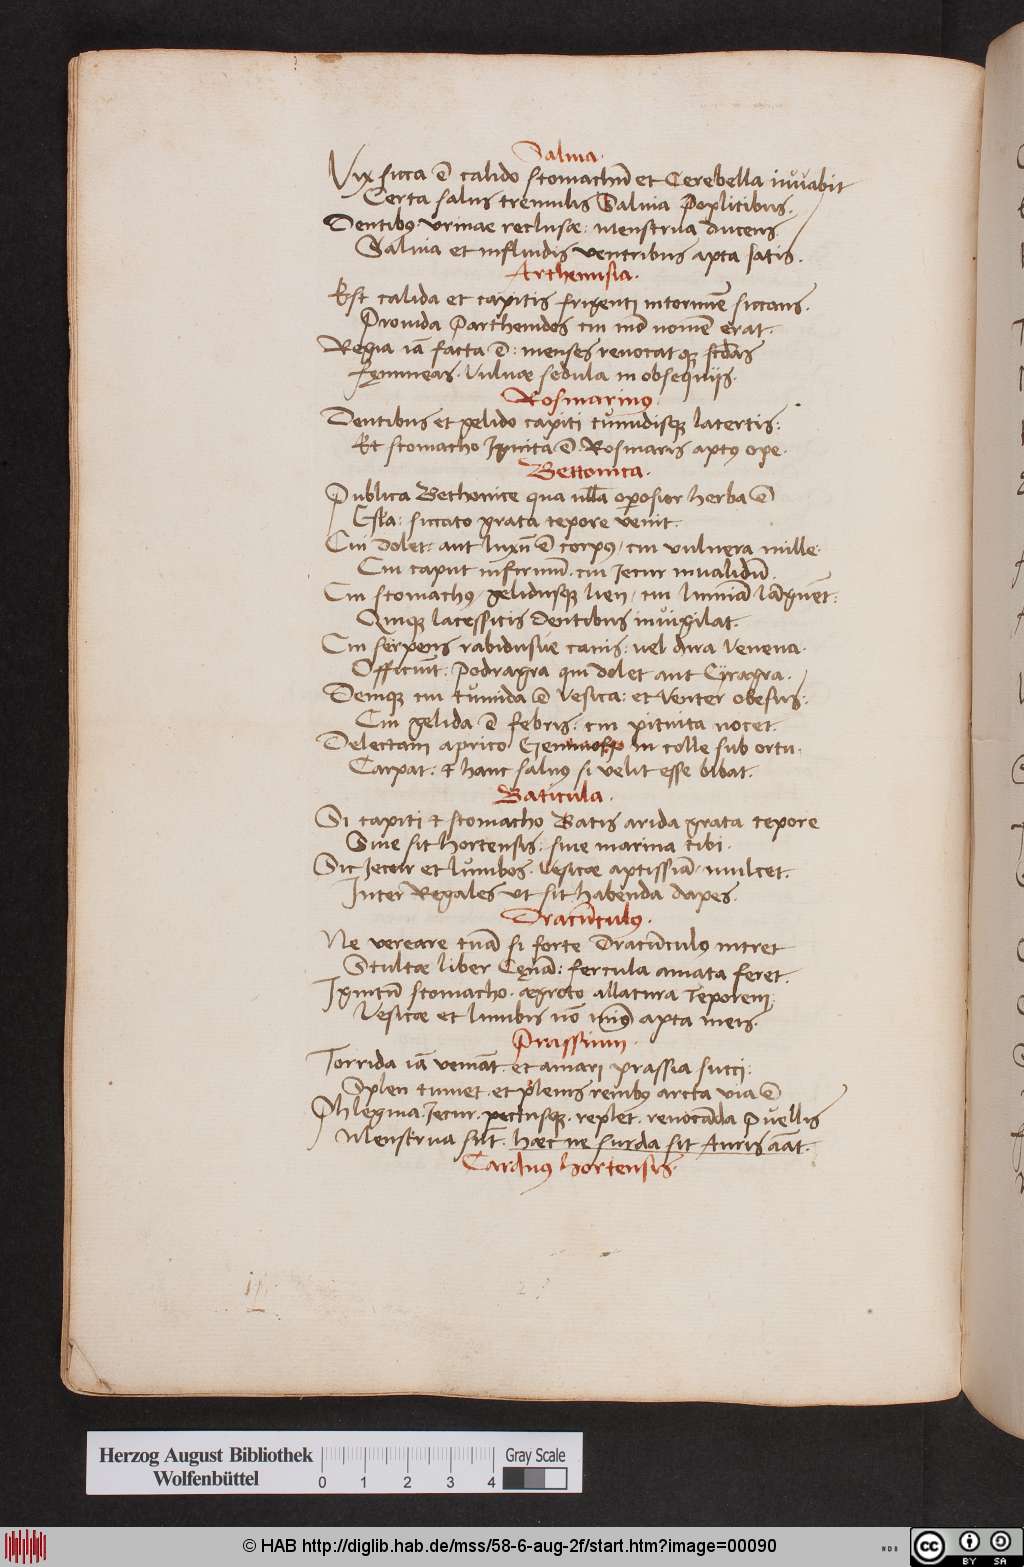 Saluia.
Vix sicca ē calido stomachū et Cerebella iuvabit
Certa salus tremulis Saluia Poplitibus.
Dentibꝰ urinae reclusae: menstrua ducens.
Saluia et influidis ventribus apta satis.
Arthemisia.
Est calida et capitis frigenti intorminē siccans.
Prouida Parthenidos cui mō nomē erat.
Regia iā facta ē: menses reuocatqꝫ scd̄as
Fęmineas. Vuluae sedula in obsequijs.
Rosmarinꝰ.
Dentibus et gelido capiti tumidisqꝫ lacertis:
Et stomacho Ignita ē Rosmaris aptꝰ ope.
Bettonica.
Publica Bethonice qua ulla operosior herba ē
Esta: siccato grata tepore venit.
Cui dolet: aut luxū ē corpꝰ, cui vulnera mille.
Cui caput infirmū. cui Jecur inualidū.
Cui stomachꝰ, gelidusqꝫ lien, cui lumiā lāguēt:
Quiqꝫ lacessitis dentibus invigilat.
Cui serpens rabidusue canis: uel dira Venena.
Officiūt. Podragra qui dolet aut Cyragra.
Deniqꝫ cui tumida ē Vesica: et Venter obesus:
Cui gelida ē febris: cui pituita nocet.
Delectam aprico in colle sub ortu.
Carpat: & hanc saluꝰ si velit esse bibat.
Baticula.
Si capiti & stomacho Batis arida grata tepore
Siue sit hortensis: siue marina tibi.
Sic Jecur et lumbos. Vesicae aptissiā, mulcet.
Inter Regales ut sit habenda dapes.
Dracūculꝰ.
Ne vereare tuā si forte Dracūculꝰ intret
Stultae liber Cęnā: fercula amata feret.
Ignitū stomacho. aegroto allatura Teporem;
Vesicae et lumbis nō minꝰ apta meis.
Prassium.
Torrida iā veniāt. et amari prassia succi:
Splen tumet. et plenis renibꝰ arcta via ē
Phlegma. Jecur. pectusqꝫ. replet. reuocāda Puellis
Menstrua sūt. haec ne surda sit Auris aīat.
Carduꝰ hortensis.
Herzog August Bibliothek
Wolfenbüttel
0 1 2 3 4
Gray Scale
© HAB http://diglib.hab.de/mss/58-6-aug-2f/start.htm?image=00090
cc BY SA